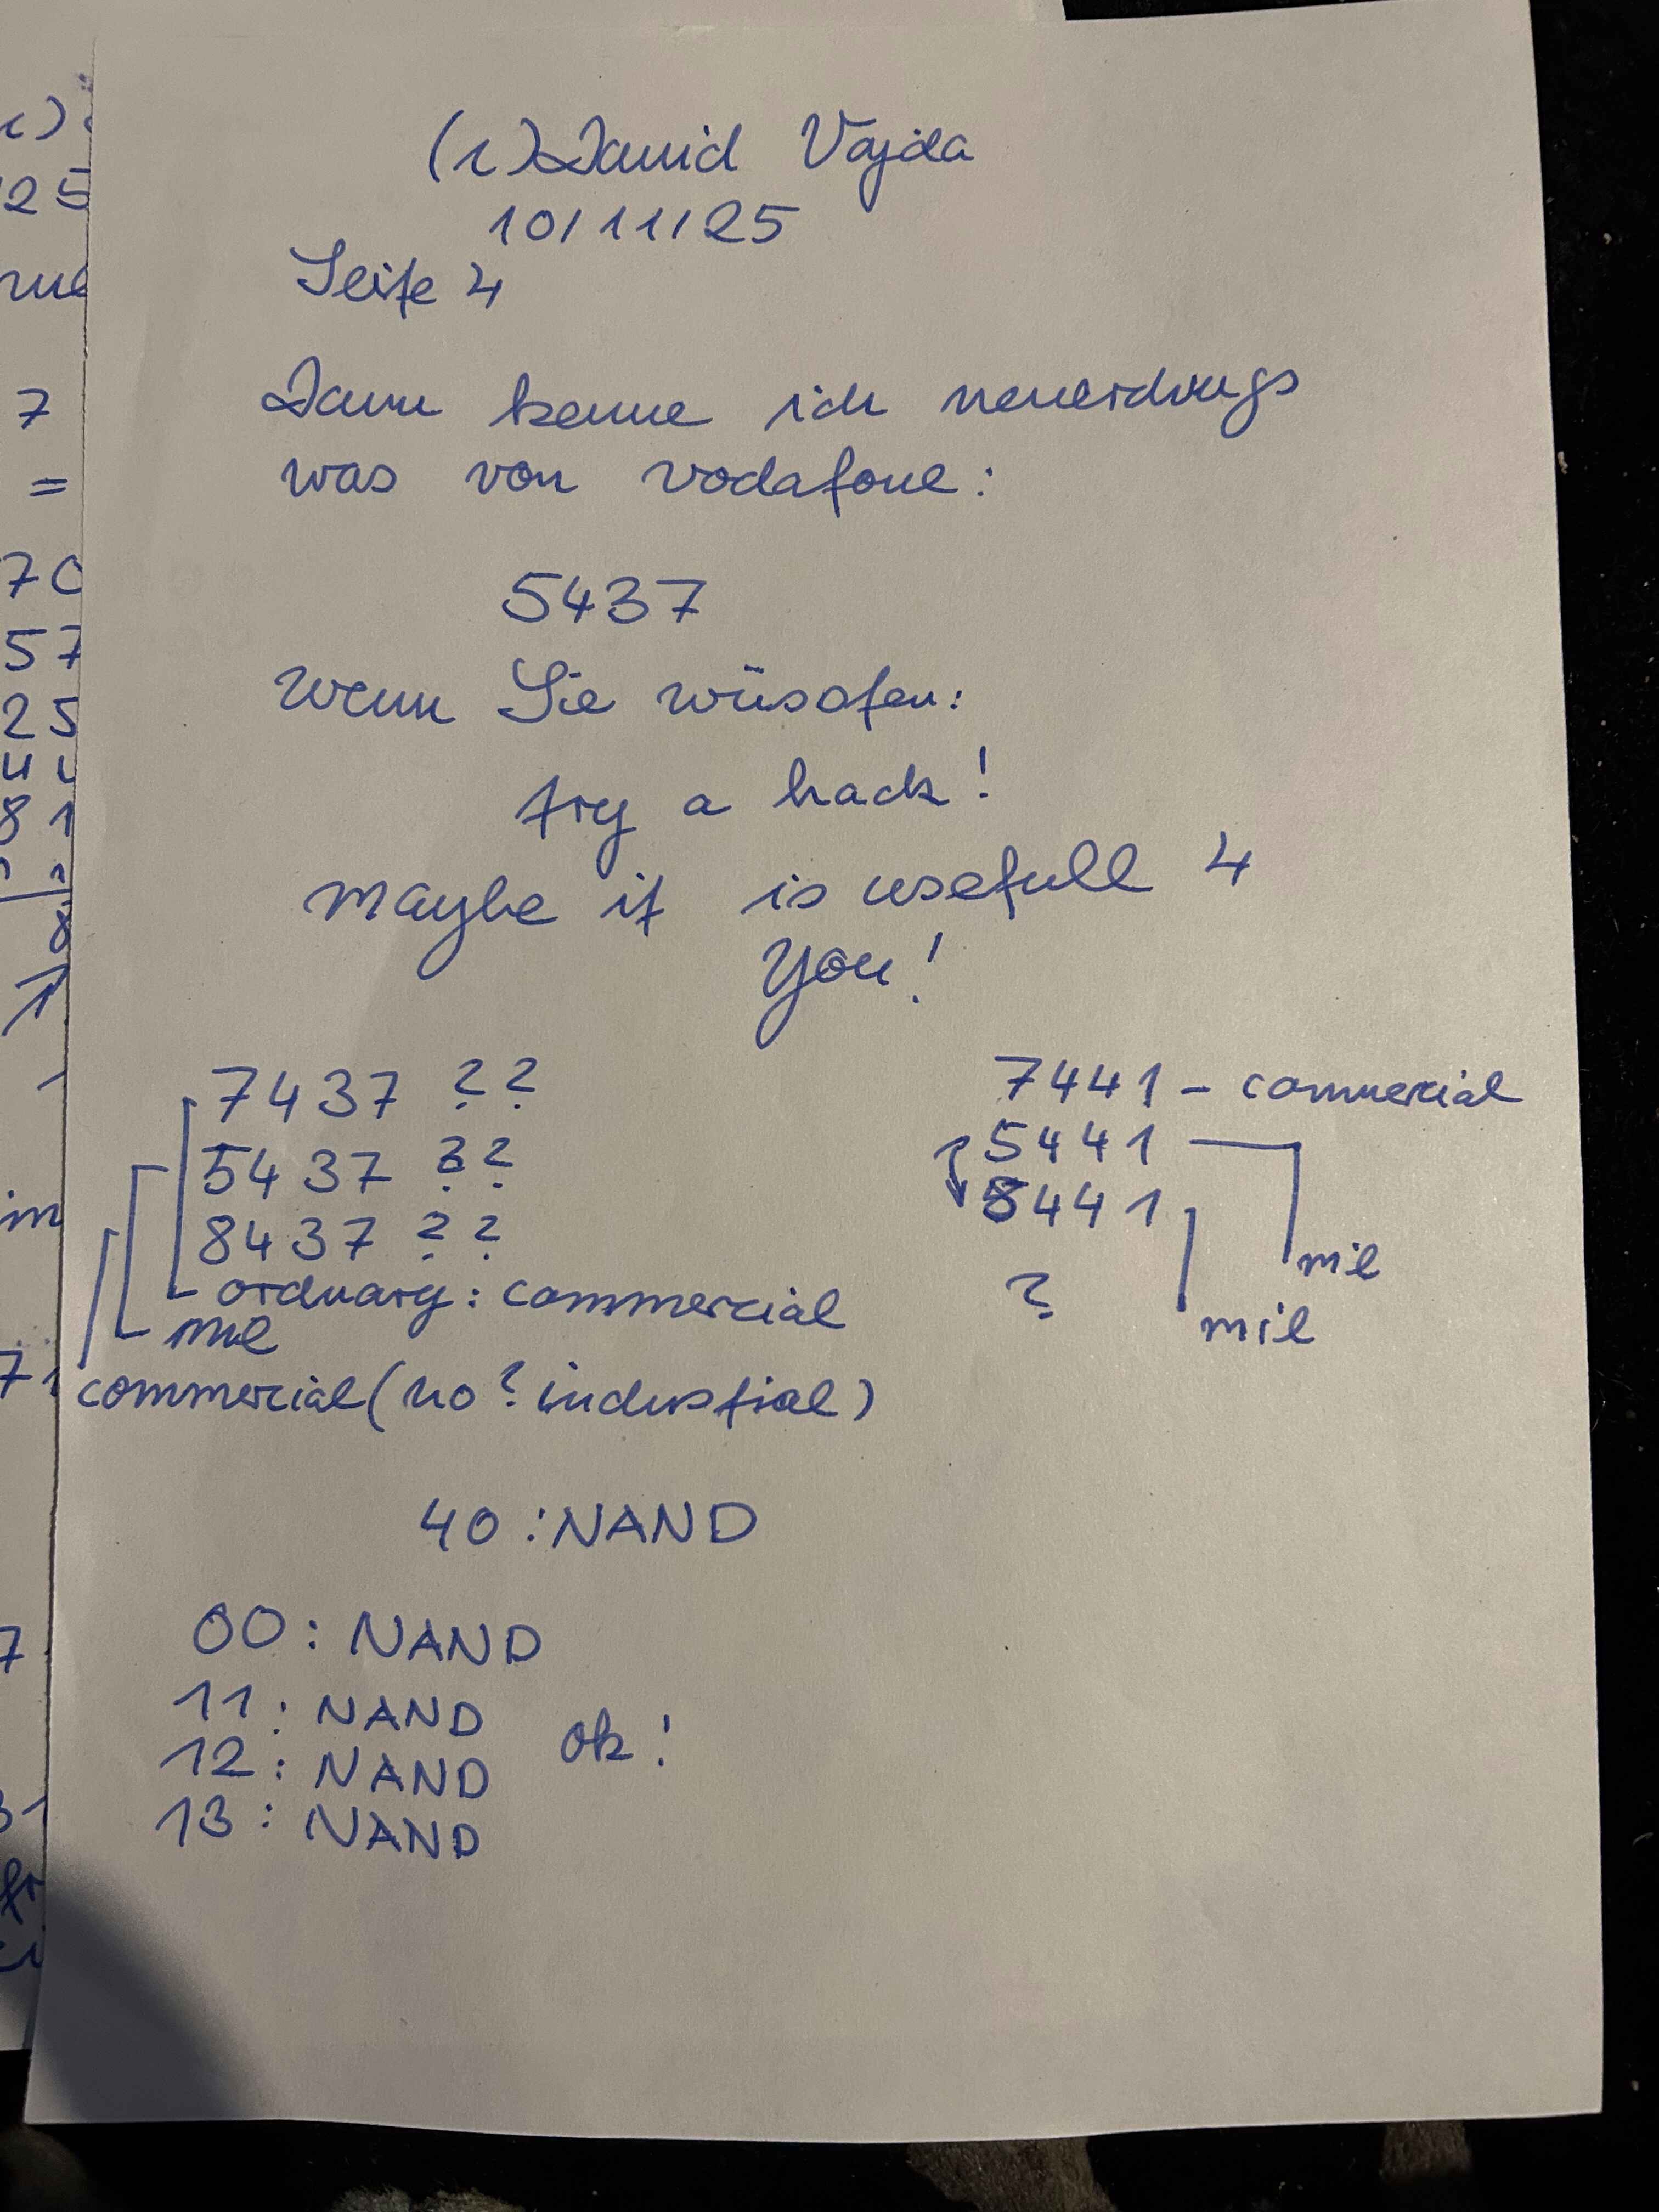 (c) David Vajda
10/11/25
Seite 4
Dann kenne ich neuerdings
was von vodafone:
5437
Wenn Sie wüssten:
try a hack!
maybe it is usefull 4
you!
7437 ??
5437 ??
8437 ??
ordinary: commercial
mil
commercial (no? industrial)
7441 - commercial
5441
8441
mil
?
mil
40 : NAND
00 : NAND
11 : NAND
12 : NAND
ok!
13 : NAND